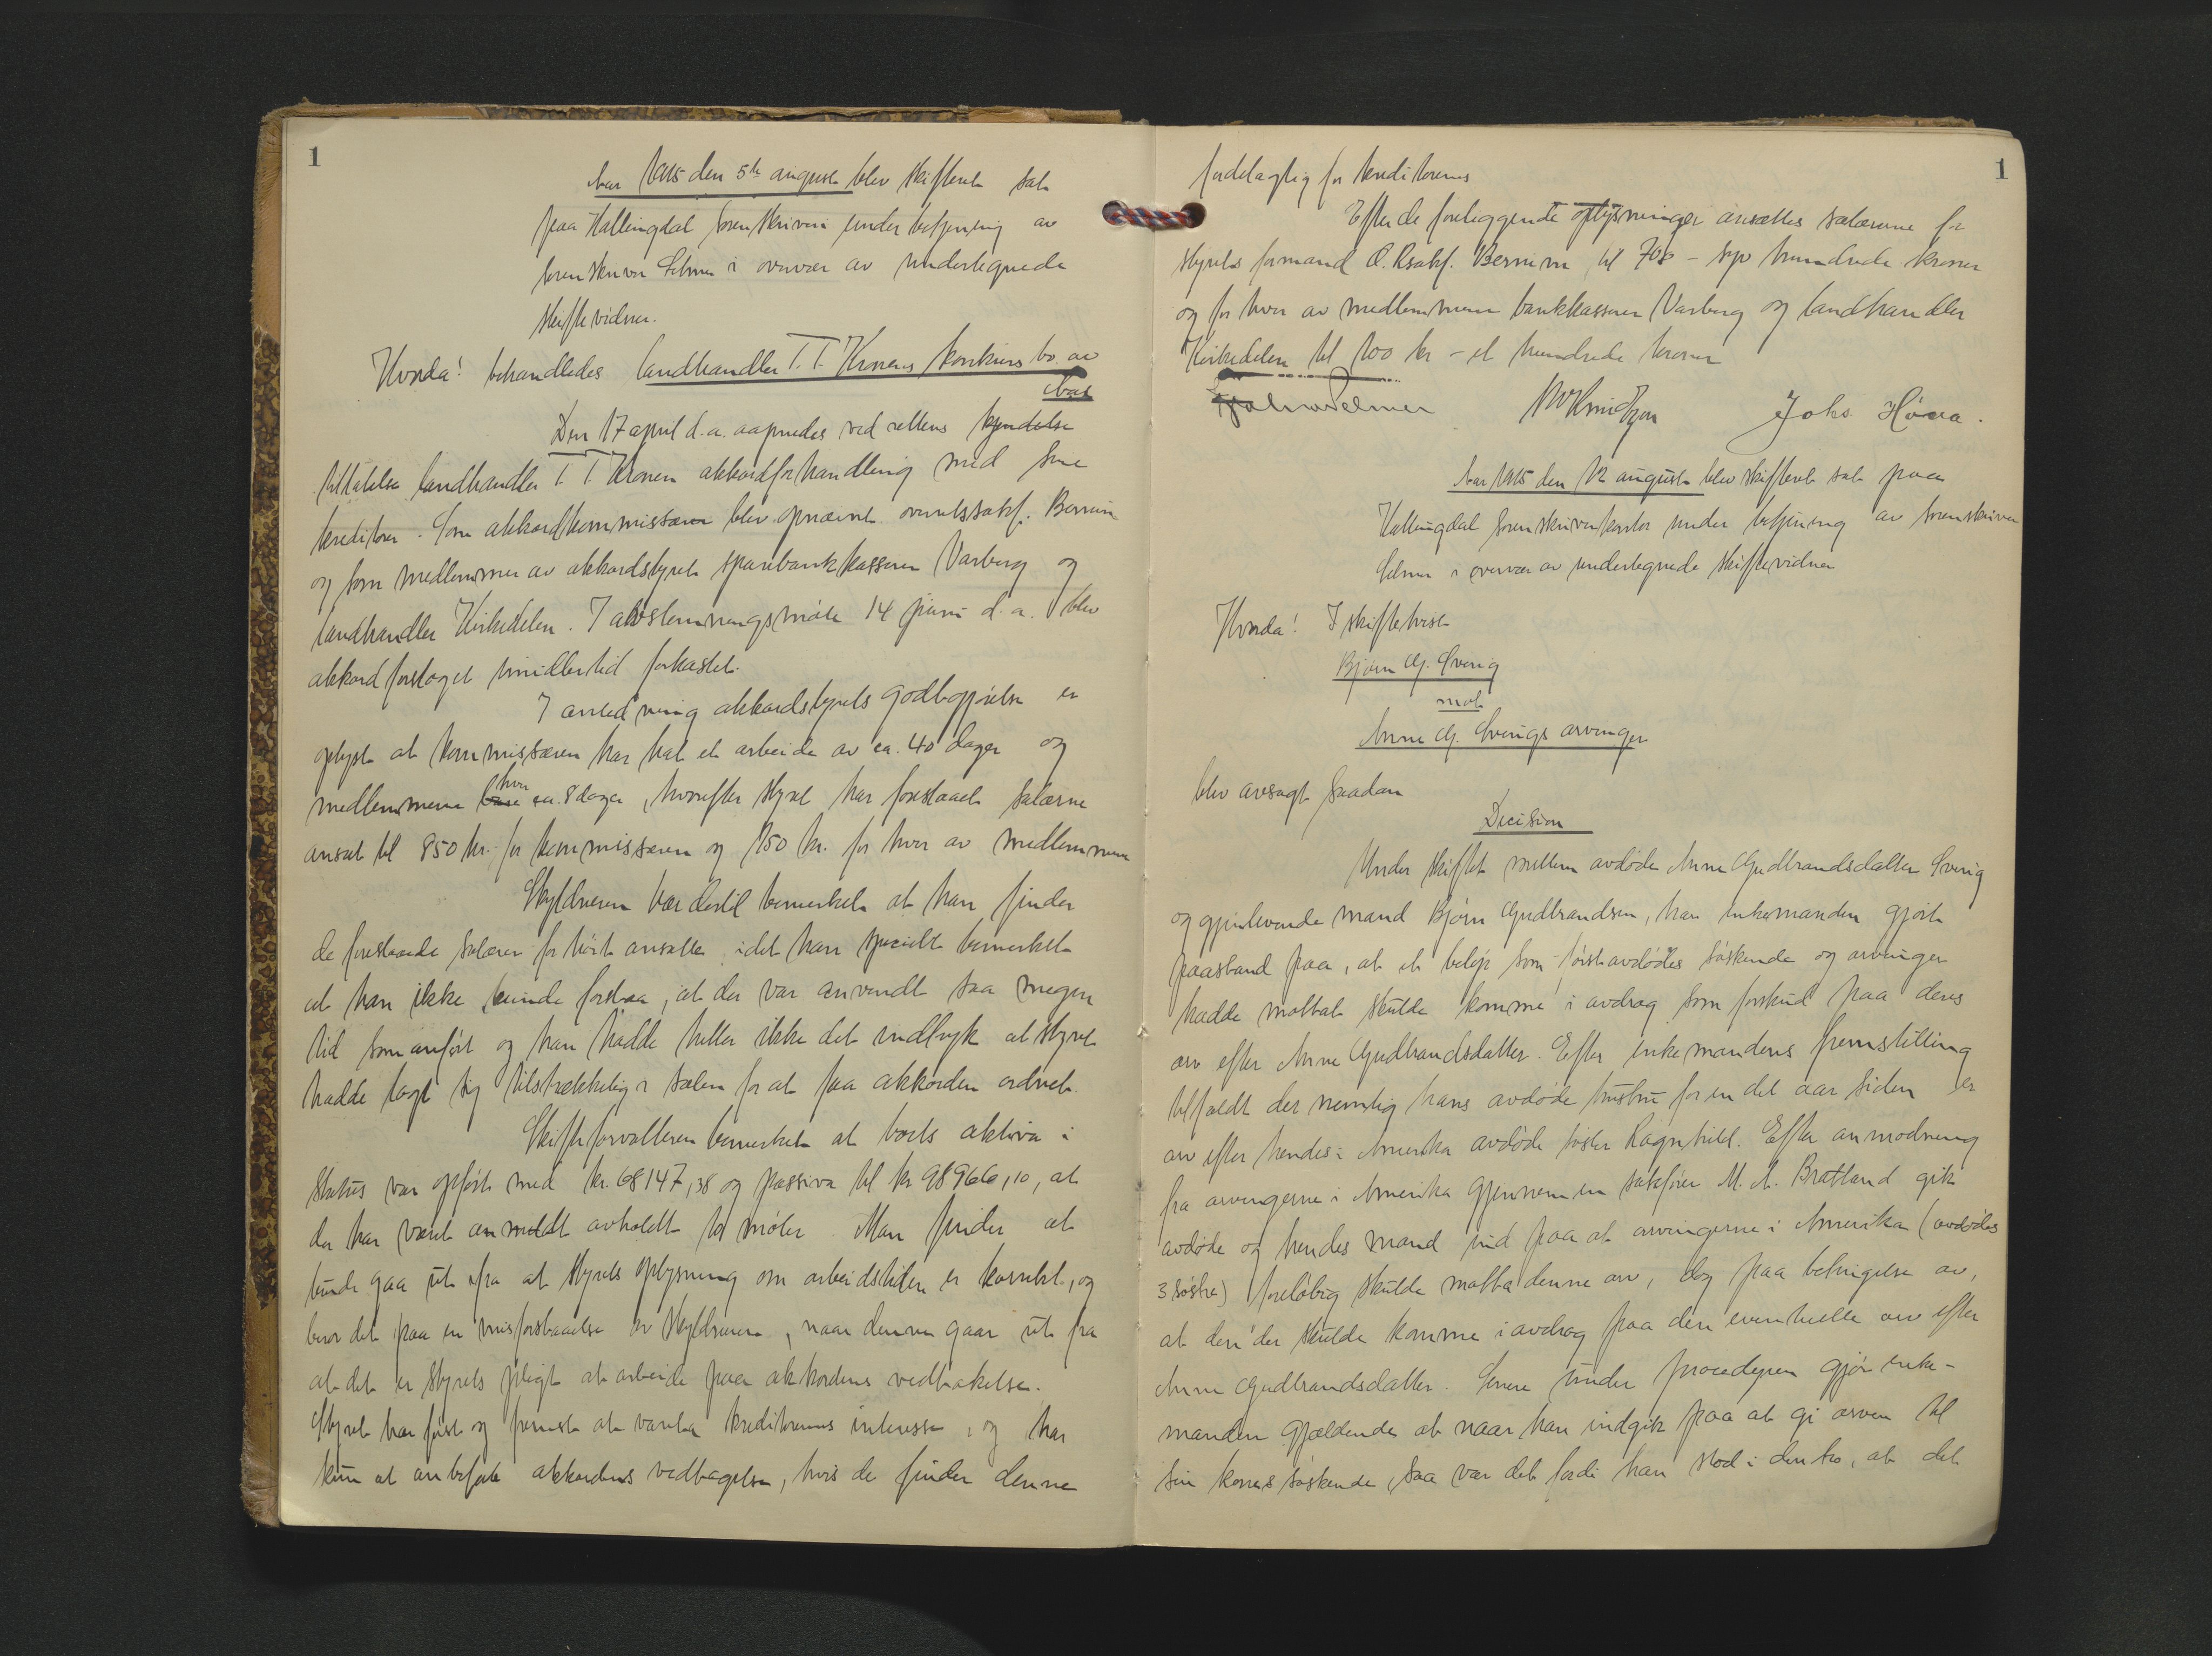 1
Aar 1915 den 5te august blev skifteret sat
paa Hallingdal sorenskriveri under betjening av
sorenskriver Selmer i overvær av undertegnede
skiftevidner.
Hvorda! behandledes landhandler T. T. Kronens konkursbo av
Aal
Den 17 april d.a. aapnedes ved rettens kjendelse
tiltakelse landhandler T. T. Kronen akkordforhandling med sine
kreditorer. Som akkordkommissær blev opnævnt overretssakf. Bernin
og som medlemmer av akkordstyret sparebankkasserer Varberg og
landhandler Kirkedelen. I avstemningsmøte 14 juni d.a. blev
akkordforslaget imidlertid forkastet.
I anledning akkordstyrets godtgjørelse er
oplyst at kommissæren har hat et arbeide av ca. 40 dager og
medlemmerne hver ca. 8 dager, hvorefter styret har foreslaaet salærene
ansat til 850 kr. for kommissæren og 150 kr. for hver av medlemmerne
Skyldneren har dertil bemerket at han finder
de foreslaaede salærer for høit ansatte idet han specielt bemerket
at han ikke kunde forstaa, at der var anvendt saa megen
tid som anført og han hadde heller ikke det indtryk at styret
hadde lagt sig tilstrækkelig i sælen for at faa akkorden ordnet.
Skifteforvalteren bemerket at boets aktiva i
status var opført med kr. 68147,38 og passiva til kr 98966,10, at
der har været anmeldt avholdt to møter. Man finder at
kunde gaa ut ifra at styrets oplysning om arbeidstiden er korrekt, og
beror det paa en misforstaaelse av skyldneren, naar denne gaar ut fra
at det er styrets pligt at arbeide paa akkordens vedtakelse.
Styret har først og fremst at vareta kreditorernes interesse, og har
kun at anbefale akkordens vedtagelse, hvis de finder denne
1
fordelagtig for kreditorerne
Efter de foreliggende oplysninger ansættes salærerne for
styrets formand O. Rsakf. Bernin til 700 - syv hundrede kroner
og for hver av medlemmerne bankkasserer Varberg og landhandler
Kirkedelen til 100 kr - et hundrede kroner
Selmer Johs Høva.
Aar 1915 den 12 august blev skifteret sat paa
Hallingdal sorenskriverkontor under betjening av sorenskriver
Selmer i overvær av undertegnede skiftevidner
Hvorda! I skiftetvist
Bjørn G. Sverig
mot
Anne G. Sverigs arvinger
blev avsagt saadan
Decision
Under skiftet mellem avdøde Anne Gudbrandsdatter Sverig
og gjenlevende mand Bjørn Gudbrandsen, har enkemanden gjort
paastand paa, at et beløp som førstavdødes søskende og arvinger
hadde mottat skulde komme i avdrag som forskud paa deres
arv efter Anne Gudbrandsdatter. Efter enkemandens fremstilling
tilfaldt der nemlig hans avdøde hustru for en del aar siden er
arv efter hendes i Amerika avdøde søster Ragnhild. Efter anmodning
fra arvingerne i Amerika gjennem en sakfører M. A. Bratland gik
avdøde og hendes mand ind paa at arvingerne i Amerika (avdødes
3 søstre) foreløbig skulde motta denne arv, dog paa betingelse av,
at den der skulde komme i avdrag paa den eventuelle arv efter
Anne Gudbrandsdatter. Senere under proceduren gjør enke-
manden gjældende at naar han indgik paa at gi arven til
sin kones søskende, saa var det fordi han stod i den tro, at det